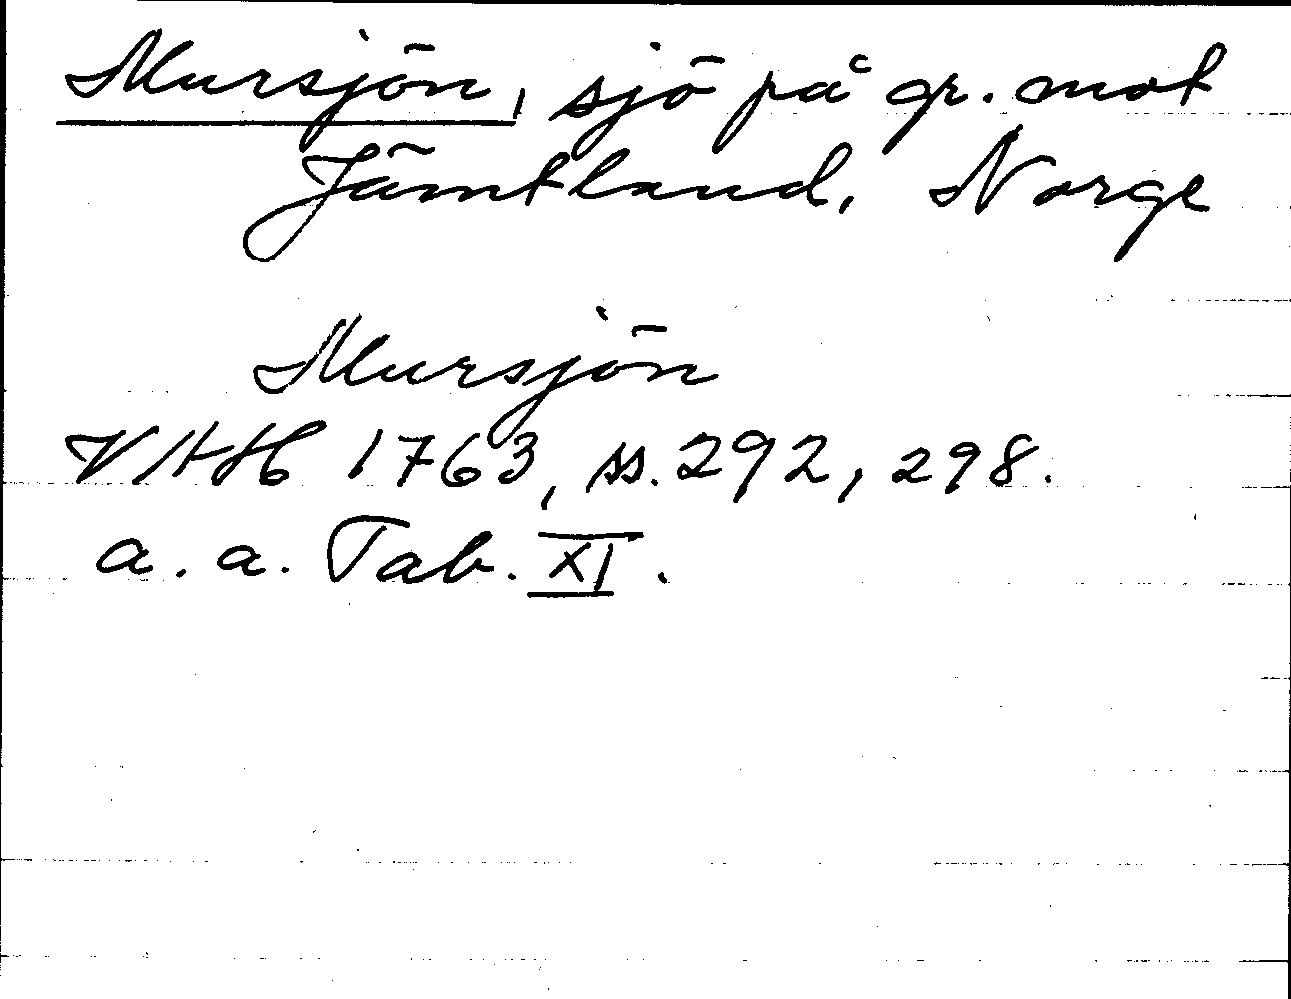 Mursjön, sjö på gr. mot
Jämtland, Norge
Mursjön
VAH 1763, ss. 292, 298.
a. a. Tab. XI.